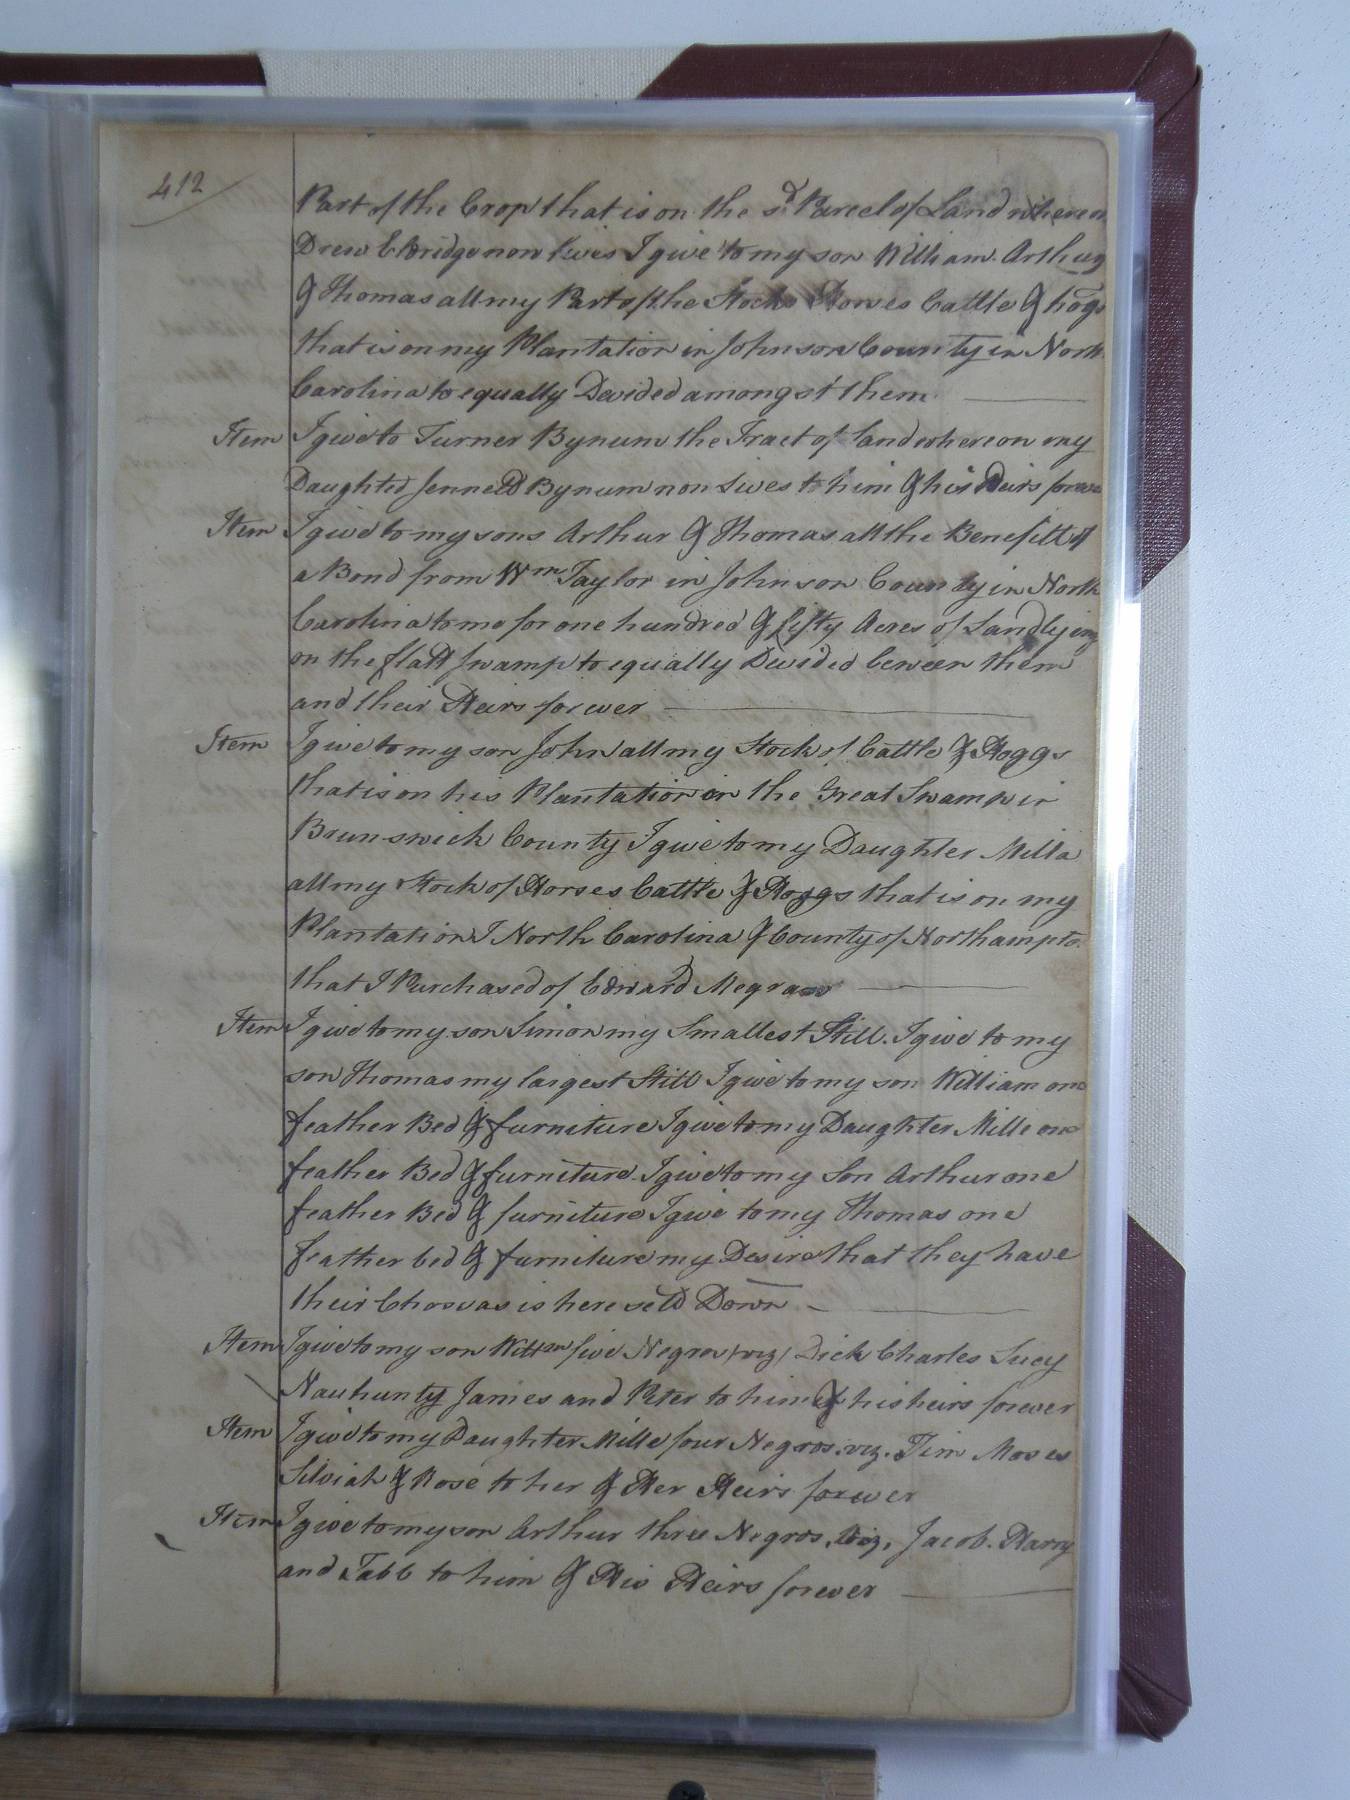 412
Part of the Crop that is on the sd. Parcel of Land whereon
Drew Elbridge now lives I give to my son William Arthur
& Thomas all my Part of the Stock Horses Cattle & hogs
that is on my Plantation in Johnson County in North
Carolina to equally Devided amongst them
Item I give to Turner Bynum the Tract of Land whereon my
Daughter Jenned Bynum now Lives to him & his Heirs forever
Item I give to my sons Arthur & Thomas all the Benefitt of
a Bond from Wm Taylor in Johnson County in North
Carolina to me for one hundred & fifty Acres of Land lying
on the flatt swamp to equally Devided between them
and their Heirs forever
Item I give to my son John all my Stock of Cattle & Hoggs
that is on his Plantation on the Great Swamp in
Brunswick County I give to my Daughter Milla
all my Stock of Horses Cattle & Hoggs that is on my
Plantation I North Carolina & County of Northampto
that I Purchased of Edward Megraw
Item I give to my son Simon my Smallest Still. I give to my
son Thomas my largest Still I give to my son William one
feather Bed & furniture I give to my Daughter Mille one
feather Bed & furniture. I give to my Son Arthur one
feather Bed & furniture I give to my Thomas one
feather bed & furniture my Desire that they have
their Chos as is here setd Down
Item I give to my son Willm five Negros viz Dick Charles Lucy
Nauhunty James and Peter to him & his heirs forever
Item I give to my Daughter Mille four Negros. viz. Tim Moses
Silviah & Rose to her & Her Heirs forever
Item I give to my son Arthur three Negros, Viz, Jacob. Harry
and Tabb to him & His Heirs forever